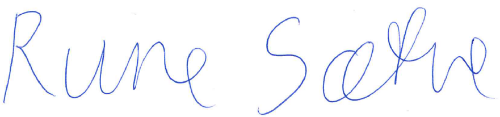 Rune Sætre